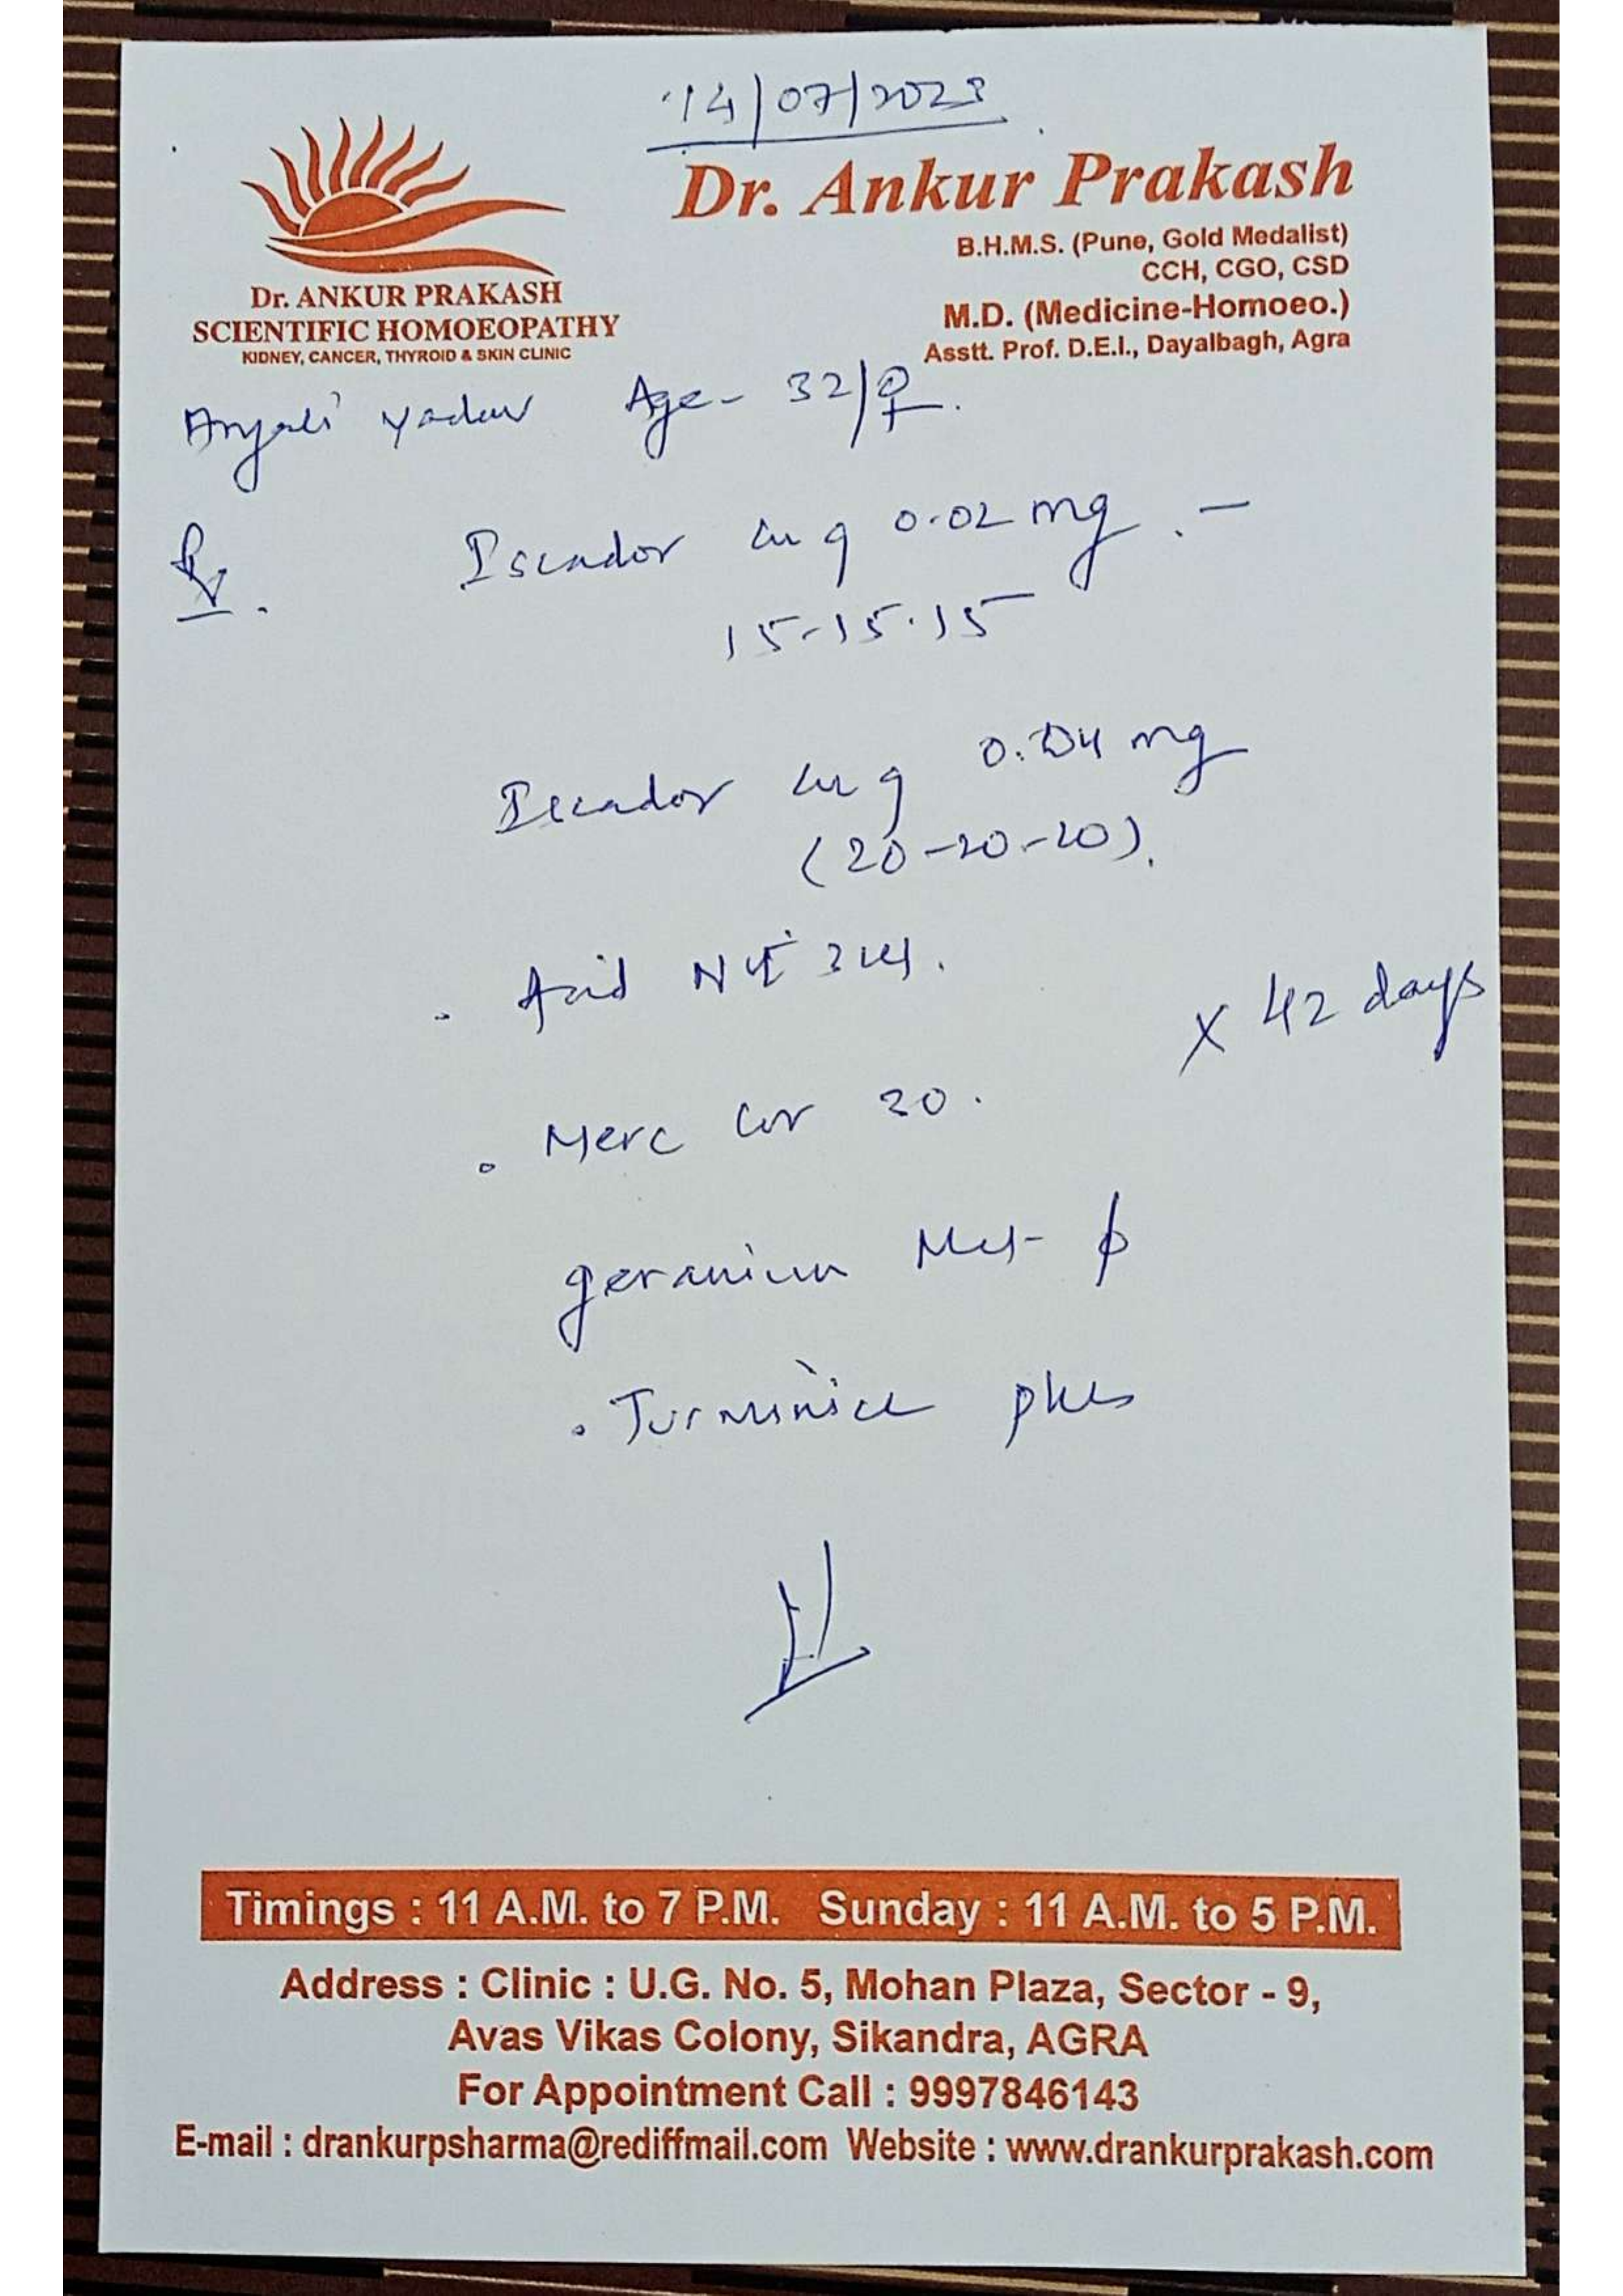 14/07/2023
Dr. Ankur Prakash
B.H.M.S. (Pune, Gold Medalist)
CCH, CGO, CSD
M.D. (Medicine-Homoeo.)
Asstt. Prof. D.E.I., Dayalbagh, Agra
Dr. ANKUR PRAKASH
SCIENTIFIC HOMOEOPATHY
KIDNEY, CANCER, THYROID & SKIN CLINIC
Anjali Yadav Age - 32/♀.
Rx. Iscador q 0.02 mg. -
15-15-15
Iscador q 0.04 mg
(20-20-20).
. Acid Nit
x 42 days
. Merc Cor 30.
geranium
. plus
Timings : 11 A.M. to 7 P.M. Sunday : 11 A.M. to 5 P.M.
Address : Clinic : U.G. No. 5, Mohan Plaza, Sector - 9,
Avas Vikas Colony, Sikandra, AGRA
For Appointment Call : 9997846143
E-mail : drankurpsharma@rediffmail.com Website : www.drankurprakash.com